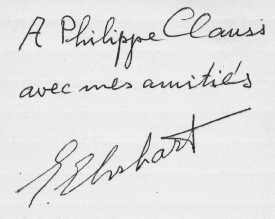 A Philippe Clauss
avec mes amitiés
E. Ehrhart